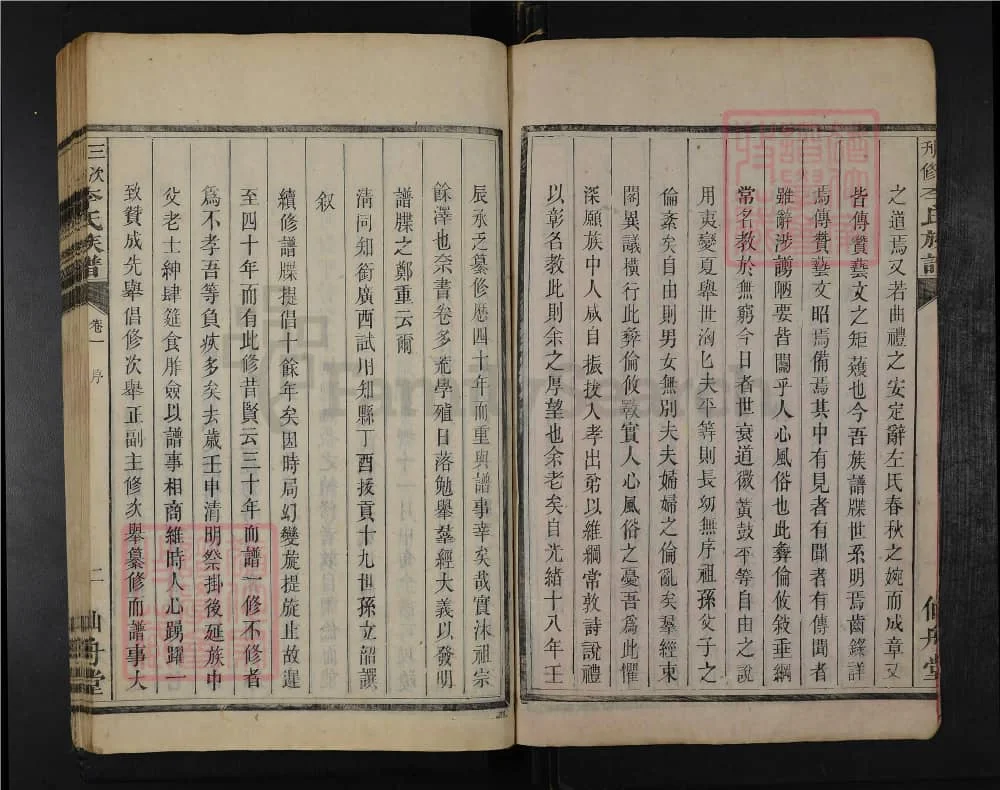 之道焉又若曲禮之安定辭左氏春秋之婉而成章又
皆傳贊藝文之矩矱也今吾族譜牒世系明焉齒錄詳
焉傳贊藝文昭焉備焉其中有見者有聞者有傳聞者
雖辭涉謭陋要皆關乎人心風俗也此彝倫攸敍垂綱
常名教於無窮今日者世衰道微黃鼓平等自由之說
用夷變夏舉世洶匕夫平等則長幼無序祖孫父子之
倫紊矣自由則男女無別夫夫婦婦之倫亂矣羣經束
閣異議橫行此彝倫攸斁實人心風俗之憂吾為此懼
深願族中人咸自振拔人孝出弟以維綱常敦詩說禮
以彰名教此則余之厚望也余老矣自光緒十八年壬
辰承乏纂修歴四十年而重與譜事幸矣哉實沐祖宗
餘澤也奈書卷多荒學殖日落勉舉羣經大義以發明
譜牒之鄭重云爾
清同知銜廣西試用知縣丁酉拔貢十九世孫立韶譔
叙
續修譜牒提倡十餘年矣因時局幻變旋提旋止故遲
至四十年而有此修昔賢云三十年而譜一修不修者
為不孝吾等負疚多矣去歲壬申清明祭掛後延族中
父老士紳肆筵食胙僉以譜事相商維時人心踴躍一
致贊成先舉倡修次舉正副主修次舉纂修而譜事大
三次李氏族譜
卷一
序
二
仙舟堂